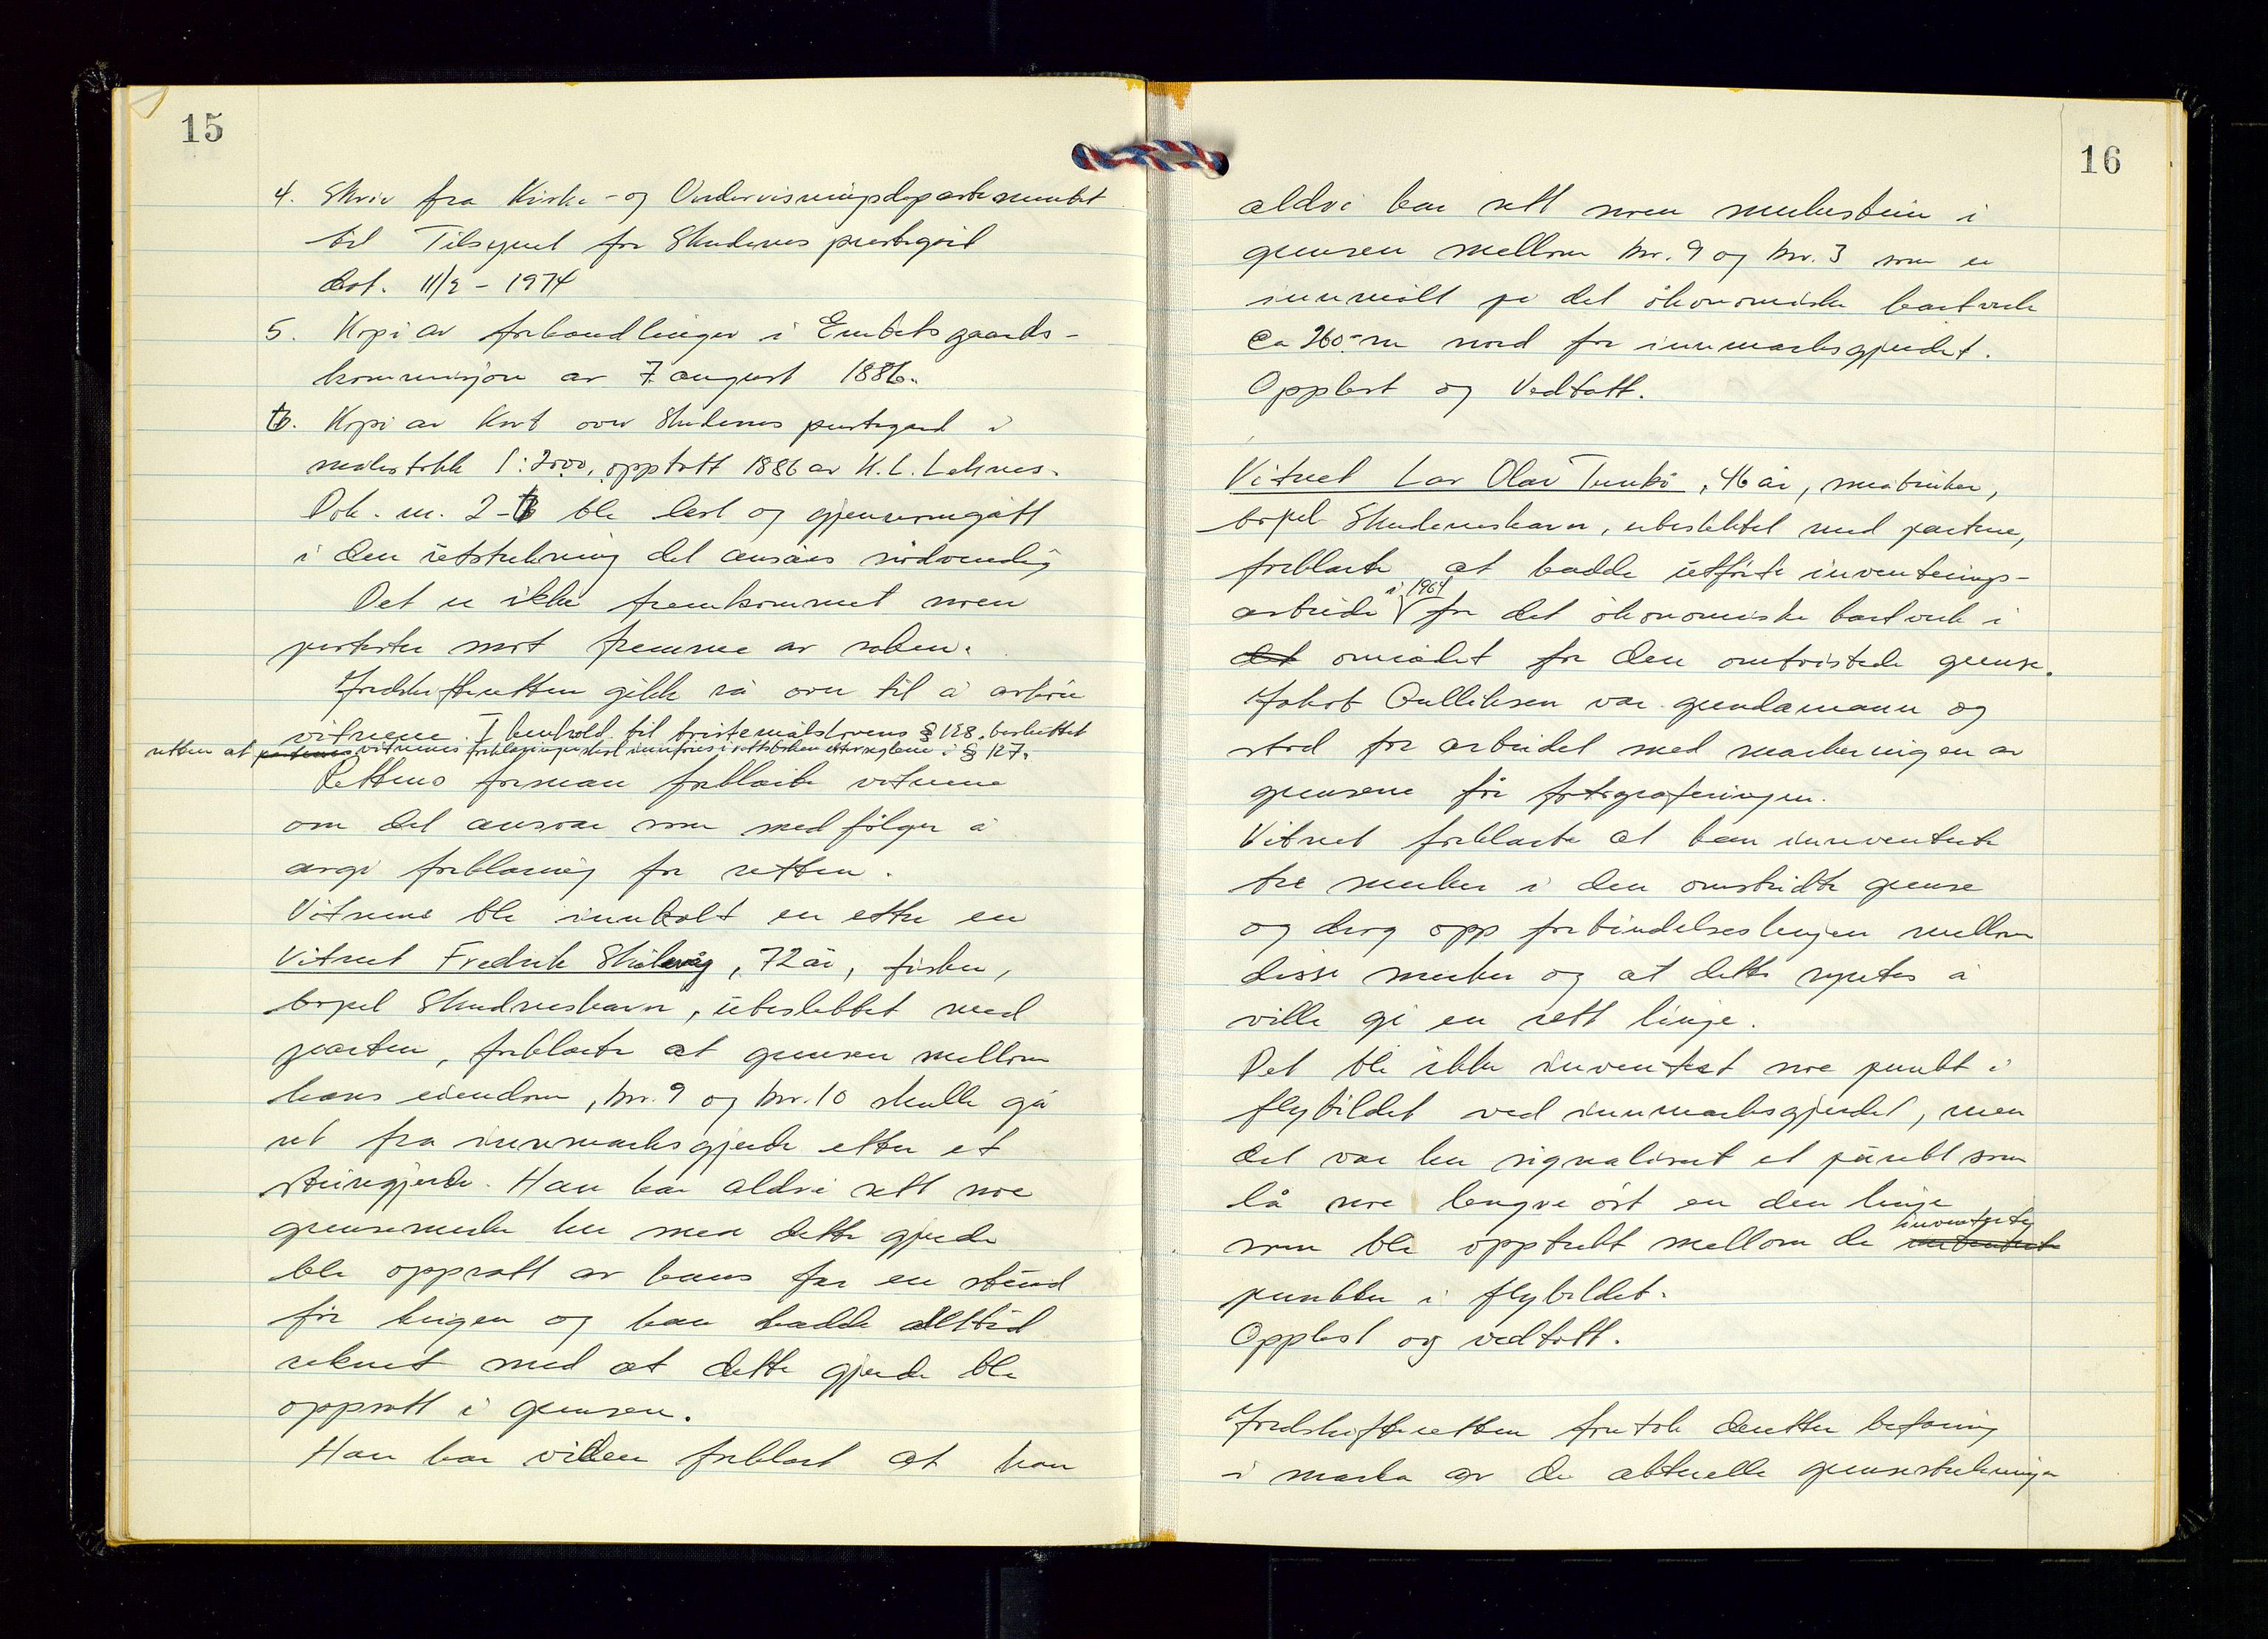 15
4. Skriv fra Kirke- og Undervisningsdepartementet
til Tilsynet for Skudenes prestegård
dat. 11/2 - 1974
5. Kopi av forhandlinger i Embetsgaards-
kommisjon av 7. august 1886.
6. Kopi av Kart over Skudenes prestegard i
målestokk 1:2000, opptatt 1886 av K. L.
Dok. nr. 2-6 ble lest og gjennomgått
i den utstrekning det ansåes nødvendig
Det er ikke fremkommet noen
protester mot fremme av saken.
Jordskifteretten gikk så over til å avhøre
vitnene. I henhold til tvistemålslovens § 128. besluttet
retten at partenes vitnenes forklaringer skal innføres i rettsboken etter reglene i § 127.
Rettens formann forklarte vitnene
om det ansvar som medfølger å
avgi forklaring for retten.
Vitnene ble innkalt en etter en
Vitnet Fredrik Skålevåg, 72 år, fisker,
bopel Skudneshavn, ubeslektet med
parten, forklarte at grensen mellom
hans eiendom, bnr. 9 og bnr. 10 skulle gå
ret fra innmarksgjerde etter et
steingjerde. Han har aldri sett noe
grensemerke her men dette gjerde
ble oppsatt av hans far en stund
før krigen og han hadde alltid
reknet med at dette gjerde ble
oppsatt i grensen.
Han har viden forklart at han
16
aldri har sett noen merkestein i
grensen mellom bnr. 9 og bnr. 3 som er
innmålt på det økonomiske kartverk
ca 260 m nord for innmarksgjerdet.
Opplest og Vedtatt.
Vitnet Lar Olav, 46 år, småbruker,
bopel Skudeneshavn, ubeslektet med partene,
forklarte at hadde utførte inventerings-
arbeide i 1964 for det økonomiske kartverk i
det området for den omtvistede grense.
Jakob Gulliksen var grendamann og
stod for arbeidet med markeringen av
grensene før fotograferingen.
Vitnet forklarte at han innventerte
tre merker i den omstridte grense
og drog opp forbindelseslinjen mellom
disse merker og at dette syntes å
ville gi en rett linje.
Det ble ikke inventert noe punkt i
flybildet ved innmarksgjerdet, men
det var her signalisert et punkt som
lå noe lengre øst en den linje
som ble opptrukt mellom de inventerte
punkter i flybildet.
Opplest og vedtatt.
Jordskifteretten foretok deretter befaring
i marka av de aktuelle grensestrekninger